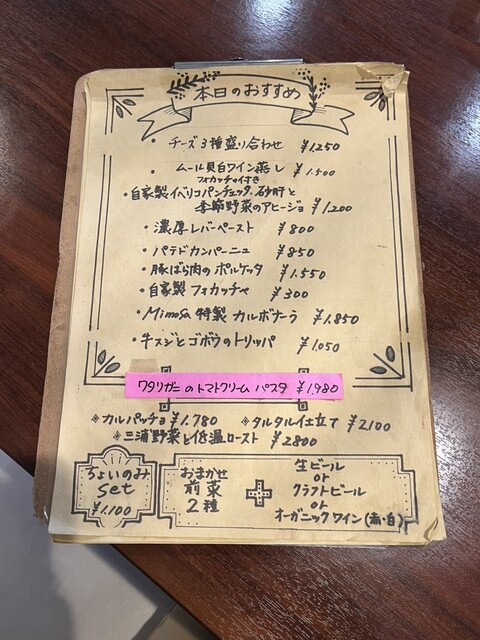 本日のおすすめ
・チーズ3種盛り合わせ ¥1,250
・ムール貝白ワイン蒸し ¥1,500
フォカッチャ付き
・自家製イベリコパンチェッタ、砂肝と
季節野菜のアヒージョ ¥1,200
・濃厚レバーペースト ¥800
・パテドカンパーニュ ¥850
・豚ばら肉のポルケッタ ¥1,550
・自家製フォカッチャ ¥300
・Mimosa 特製カルボナーラ ¥1,850
・牛スジとゴボウのトリッパ ¥1,050
ワタリガニのトマトクリームパスタ ¥1,980
※カルパッチョ ¥1,780 ※タルタル仕立て ¥2100
※三浦野菜と低温ロースト ¥2800
ちょいのみ
set
¥1,100
おまかせ
前菜
2種
+
生ビール
or
クラフトビール
or
オーガニックワイン(赤・白)